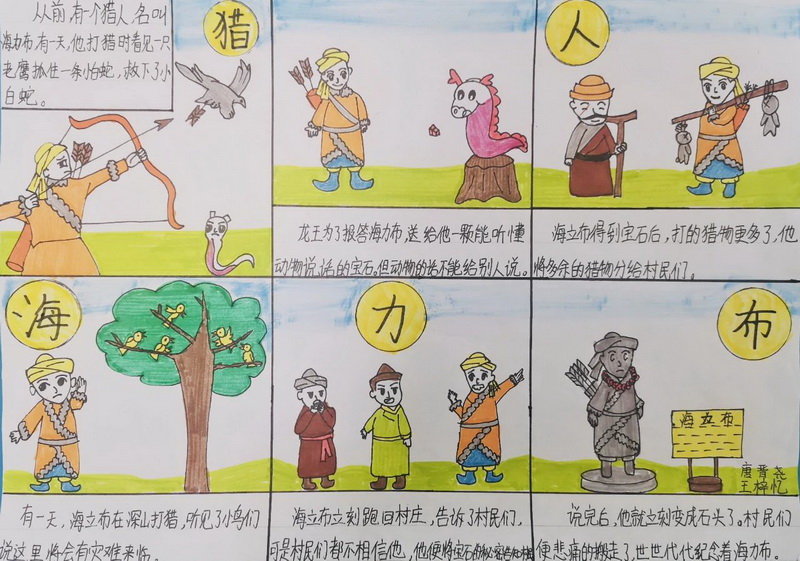 从前,有一个猎人,名叫
海力布,有一天,他打猎时看见一只
老鹰抓住一条小白蛇,救下了小
白蛇。
猎
龙王为了报答海力布,送给他一颗能听懂
动物说话的宝石。但动物的话不能给别人说。
人
海立布得到宝石后,打的猎物更多了,他
将多余的猎物分给村民们。
海
有一天,海立布在深山打猎,听见了小鸟们
说这里将会有灾难来临。
力
海立布立刻跑回村庄,告诉了村民们,
可是村民们都不相信他,他便将宝石的秘密
布
海立布
唐晋尧
王梓忆
说完后,他就立刻变成石头了。村民们
便悲痛的搬走了,世世代代纪念着海力布。